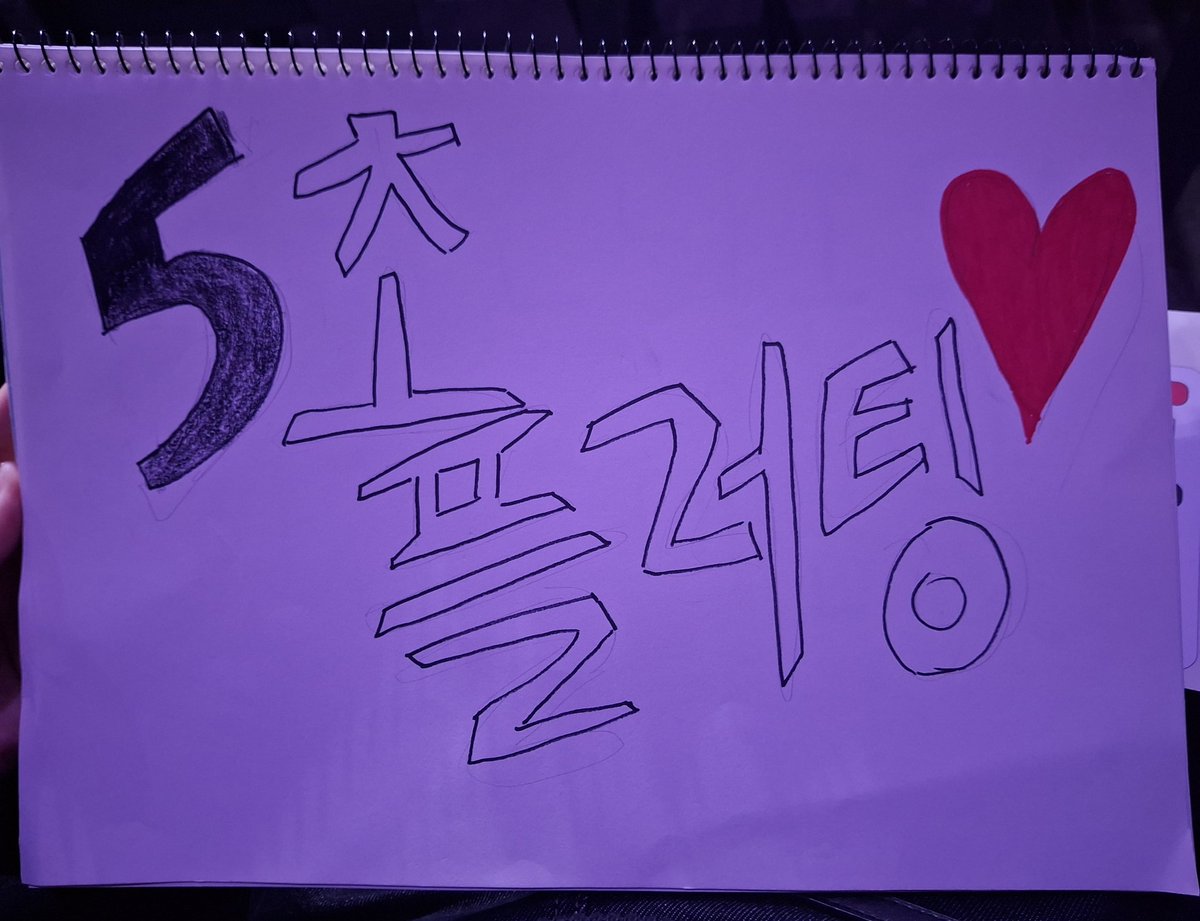 5초 플러팅